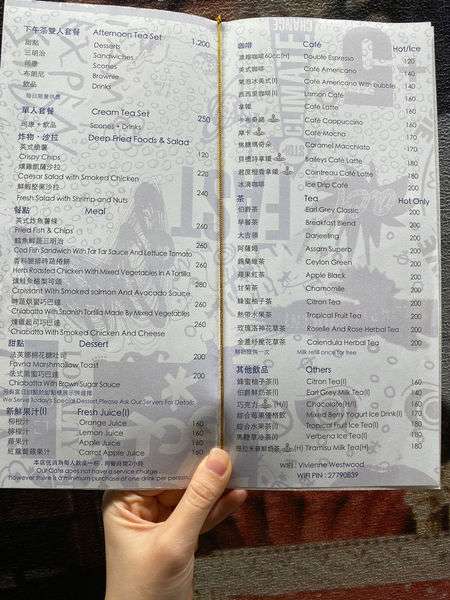 下午茶雙人套餐 Afternoon Tea Set 1,200
甜點 Desserts
三明治 Sandwiches
司康 Scones
布朗尼 Brownie
飲品 Drinks
每日限量供應
單人套餐 Cream Tea Set 250
司康 + 飲品 Scones + Drinks
炸物、沙拉 Deep Fried Foods & Salad
英式脆薯 120
Crispy Chips
燻雞凱薩沙拉 220
Caesar Salad with Smoked Chicken
鮮蝦堅果沙拉 220
Fresh Salad with Shrimp and Nuts
餐點 Meal
英式炸魚薯條 260
Fried Fish & Chips
鱈魚鮮蔬三明治 260
Cod Fish Sandwich With Tar Tar Sauce And Lettuce Tomato
260
Herb Roasted Chicken With Mixed Vegetables In A Tortilla
260
Croissant With Smoked salmon And Avocado Sauce
260
Chiabatta With Spanish Tortilla Made By Mixed Vegetables
260
Chiabatta With Smoked Chicken And Cheese
甜點 Dessert
法芙娜棉花糖吐司 200
Favna Marshmallow Toast
法式黑蜜巧巴達 200
Chiabatta With Brown Sugar Sauce
We Serve Today's Special Dessert Please Ask Our Servers For Details
新鮮果汁(I) Fresh Juice(I)
柳橙汁 Orange Juice 160
檸檬汁 Lemon Juice 160
蘋果汁 Apple Juice 160
紅蘿蔔蘋果汁 Carrot Apple Juice 180
本店低消為每人飲品一杯，用餐限時2小時
Our Cafe does not have a service charge
however there is a minimum purchase of one drink per person
咖啡 Café Hot/Ice
濃縮咖啡60cc(H) Double Espresso 120
美式咖啡 Café Americano 140
氣泡冰美式(I) Café Americano With bubble 160
西西里咖啡(I) Lemon Café 160
拿鐵 Café Latte 160
卡布奇諾 Café Cappuccino 160
摩卡 Café Mocha 160
焦糖瑪奇朵 Caramel Macchiato 160
貝禮詩拿鐵 Baileys Café Latte 180
君度橙香拿鐵 Cointreau Café Latte 180
冰滴咖啡 Ice Drip Café 180
茶 Tea Hot Only
伯爵茶 Earl Grey Classic 200
早餐茶 Breakfast Blend 200
大吉嶺 Darjeeling 200
阿薩姆 Assam Superb 200
錫蘭綠茶 Ceylon Green 200
蘋果紅茶 Apple Black 200
甘菊茶 Chamomile 200
蜂蜜柚子茶 Citron Tea 200
熱帶水果茶 Tropical Fruit Tea 200
玫瑰洛神花草茶 Roselle And Rose Herbal Tea 200
金盞舒壓花草茶 Calendula Herbal Tea 200
鮮奶續換一次 Milk refill once for free
其他飲品 Others
蜂蜜柚子茶(I) Citron Tea(I) 160
伯爵鮮奶茶(I) Earl Grey Milk Tea(I) 140
巧克力 (H) Chocolate(H/I) 160
綜合莓果優格飲 Mixed Berry Yogurt Ice Drink(I) 160
綜合水果茶(I) Tropical Fruit Ice Tea(I) 160
馬鞭草冰茶(I) Verbena Ice Tea(I) 160
提拉米蘇鮮奶茶 (H) Tiramisu Milk Tea(H) 180
WIFI : Vivienne Westwood
WIFI PIN : 27790839